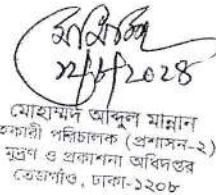 ১২/৮/২০২৪
মোহাম্মদ আব্দুল মান্নান
হকারী পরিচালক (প্রশাসন-২)
মুদ্রণ ও প্রকাশনা অধিদপ্তর
তেজগাঁও, ঢাকা-১২০৮